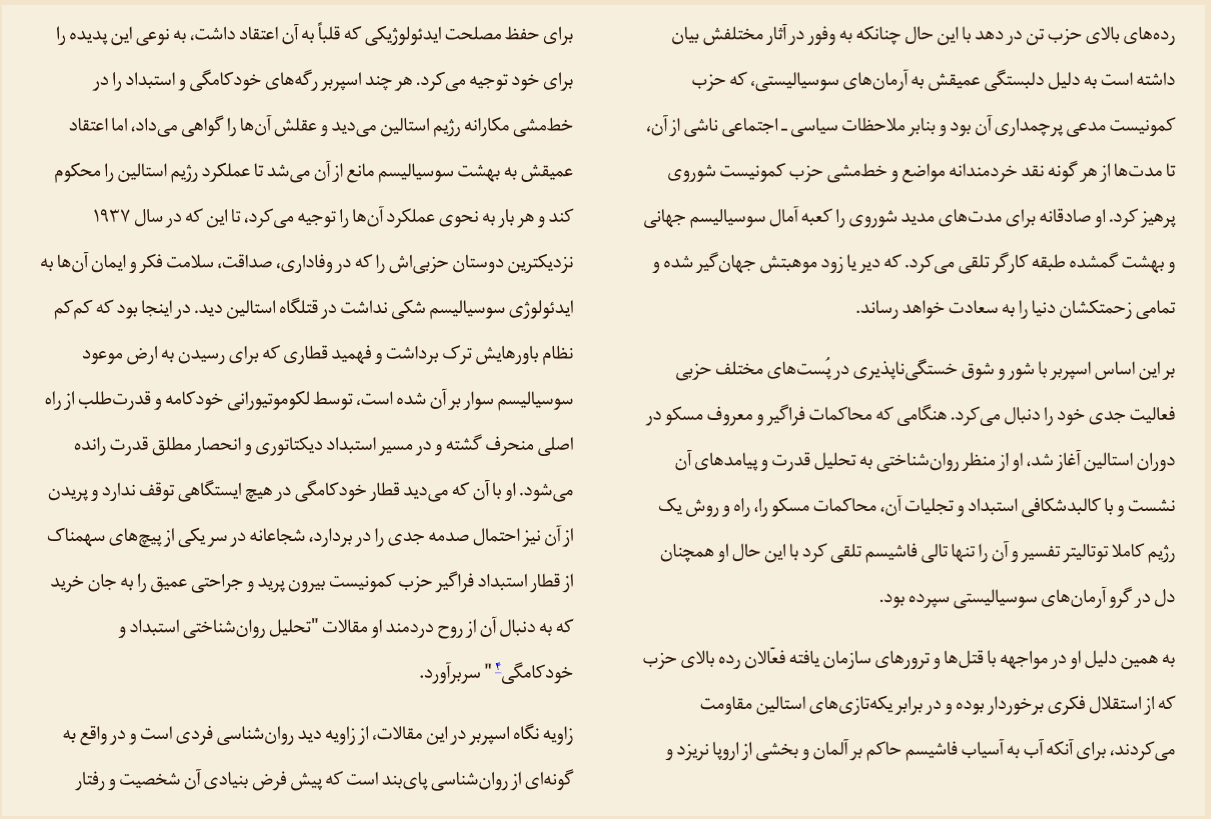 رده‌های بالای حزب تن در دهد با این حال چنانکه به وفور در آثار مختلفش بیان
داشته است به دلیل دلبستگی عمیقش به آرمان‌های سوسیالیستی، که حزب
کمونیست مدعی پرچمداری آن بود و بنابر ملاحظات سیاسی ـ اجتماعی ناشی از آن،
تا مدت‌ها از هر گونه نقد خردمندانه مواضع و خط‌مشی حزب کمونیست شوروی
پرهیز کرد. او صادقانه برای مدت‌های مدید شوروی را کعبه آمال سوسیالیسم جهانی
و بهشت گمشده طبقه کارگر تلقی می‌کرد. که دیر یا زود موهبتش جهان‌گیر شده و
تمامی زحمتکشان دنیا را به سعادت خواهد رساند.
بر این اساس اسپربر با شور و شوق خستگی‌ناپذیری در پُست‌های مختلف حزبی
فعالیت جدی خود را دنبال می‌کرد. هنگامی که محاکمات فراگیر و معروف مسکو در
دوران استالین آغاز شد، او از منظر روان‌شناختی به تحلیل قدرت و پیامدهای آن
نشست و با کالبدشکافی استبداد و تجلیات آن، محاکمات مسکو را، راه و روش یک
رژیم کاملا توتالیتر تفسیر و آن را تنها تالی فاشیسم تلقی کرد با این حال او همچنان
دل در گرو آرمان‌های سوسیالیستی سپرده بود.
به همین دلیل او در مواجهه با قتل‌ها و ترورهای سازمان یافته فعّالان رده بالای حزب
که از استقلال فکری برخوردار بوده و در برابر یکه‌تازی‌های استالین مقاومت
می‌کردند، برای آنکه آب به آسیاب فاشیسم حاکم بر آلمان و بخشی از اروپا نریزد و
برای حفظ مصلحت ایدئولوژیکی که قلباً به آن اعتقاد داشت، به نوعی این پدیده را
برای خود توجیه می‌کرد. هر چند اسپربر رگه‌های خودکامگی و استبداد را در
خط‌مشی مکارانه رژیم استالین می‌دید و عقلش آن‌ها را گواهی می‌داد، اما اعتقاد
عمیقش به بهشت سوسیالیسم مانع از آن می‌شد تا عملکرد رژیم استالین را محکوم
کند و هر بار به نحوی عملکرد آن‌ها را توجیه می‌کرد، تا این که در سال ۱۹۳۷
نزدیکترین دوستان حزبی‌اش را که در وفاداری، صداقت، سلامت فکر و ایمان آن‌ها به
ایدئولوژی سوسیالیسم شکی نداشت در قتلگاه استالین دید. در اینجا بود که کم‌کم
نظام باورهایش ترک برداشت و فهمید قطاری که برای رسیدن به ارض موعود
سوسیالیسم سوار بر آن شده است، توسط لکوموتیورانی خودکامه و قدرت‌طلب از راه
اصلی منحرف گشته و در مسیر استبداد دیکتاتوری و انحصار مطلق قدرت رانده
می‌شود. او با آن که می‌دید قطار خودکامگی در هیچ ایستگاهی توقف ندارد و پریدن
از آن نیز احتمال صدمه جدی را در بردارد، شجاعانه در سر یکی از پیچ‌های سهمناک
از قطار استبداد فراگیر حزب کمونیست بیرون پرید و جراحتی عمیق را به جان خرید
که به دنبال آن از روح دردمند او مقالات "تحلیل روان‌شناختی استبداد و
خودکامگی۴ " سربرآورد.
زاویه نگاه اسپربر در این مقالات، از زاویه دید روان‌شناسی فردی است و در واقع به
گونه‌ای از روان‌شناسی پای‌بند است که پیش فرض بنیادی آن شخصیت و رفتار